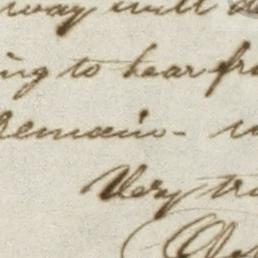 way will
ing to hear fr
remain -
Very tr